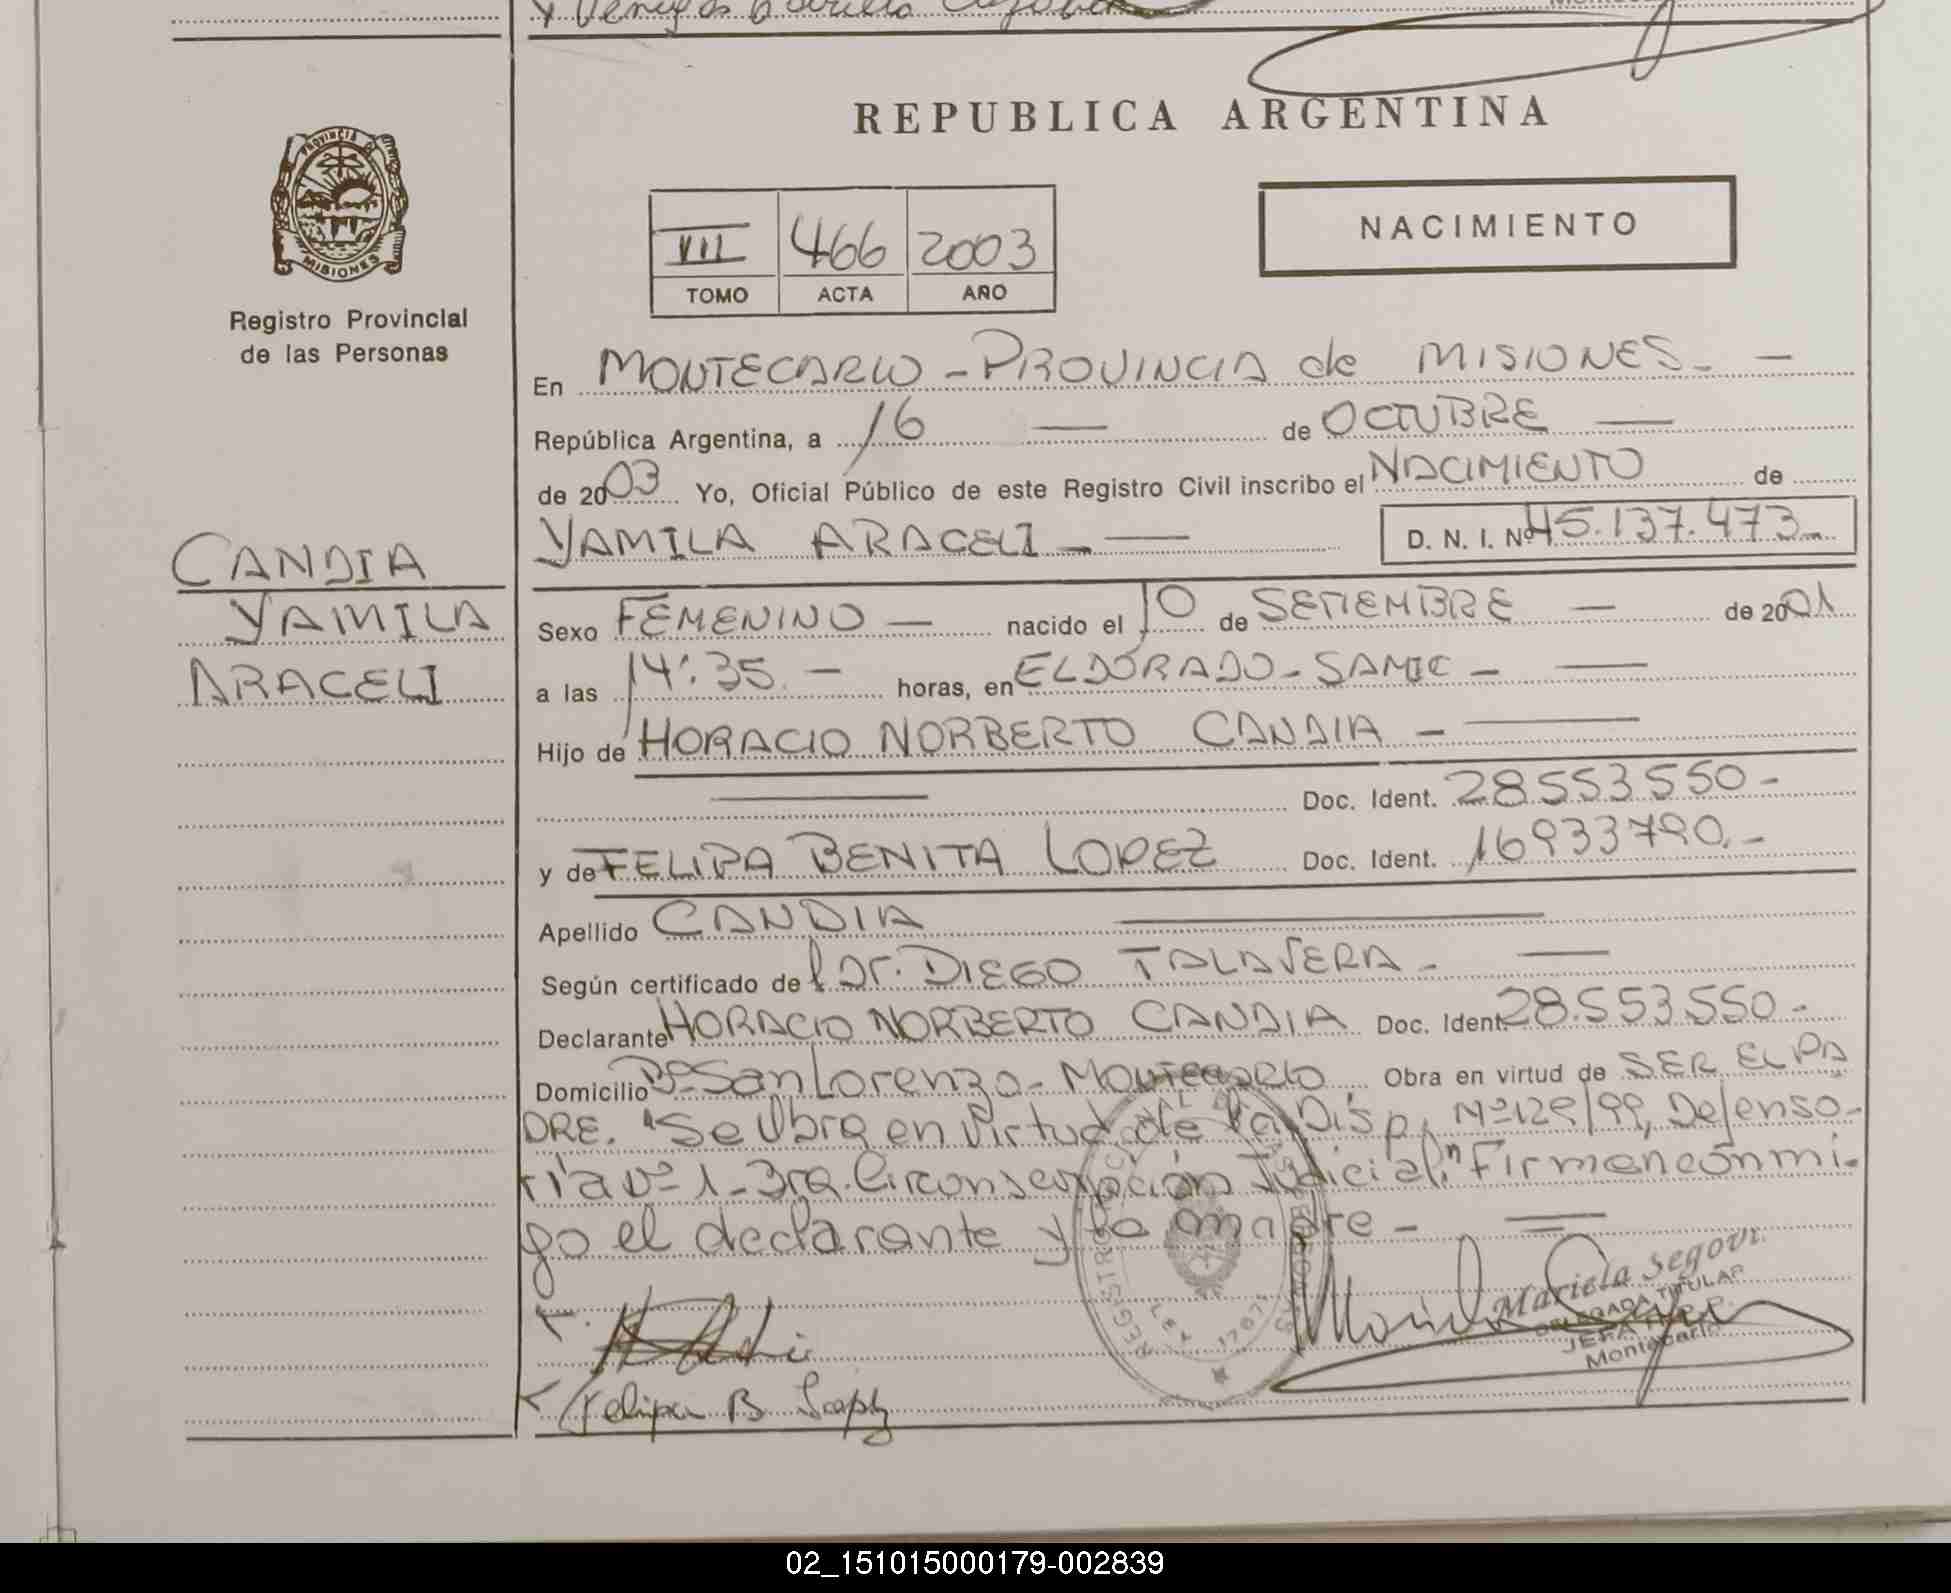 REPUBLICA ARGENTINA
PROVINCIA DE
MISIONES
Registro Provincial
de las Personas
VII 466 2003
TOMO ACTA AÑO
NACIMIENTO
En MONTECARLO - PROVINCIA de MISIONES. —
República Argentina, a 16 — de OCTUBRE —
de 2003 Yo, Oficial Público de este Registro Civil inscribo el NACIMIENTO de
YAMILA ARACELI - — D. N. I. Nº 45.137.473-
CANDIA
YAMILA
ARACELI
Sexo FEMENINO — nacido el 10 de SETIEMBRE — de 2001
a las 14:35. — horas, en ELDORADO - SAMIC - —
Hijo de HORACIO NORBERTO CANDIA - —
— Doc. Ident. 28.553.550-
y de FELIPA BENITA LOPEZ Doc. Ident. 16933790.-
Apellido CANDIA —
Según certificado de l Dr. DIEGO TALAVERA - —
Declarante HORACIO NORBERTO CANDIA Doc. Ident. 28.553.550-
Domicilio Bº San Lorenzo - Montecarlo Obra en virtud de SER EL PA
DRE. "Se Obra en Virtud de la Disp. Nº 129/99, Defenso-
ría nº 1 - 3ra. Circonscripción Judicial." Firman conmi-
go el declarante y la madre - —
Felipa B Lopez
Mariela Segovi
DELEGADA TITULAR
JEFA
Montecarlo
LEY 17671
02_151015000179-002839